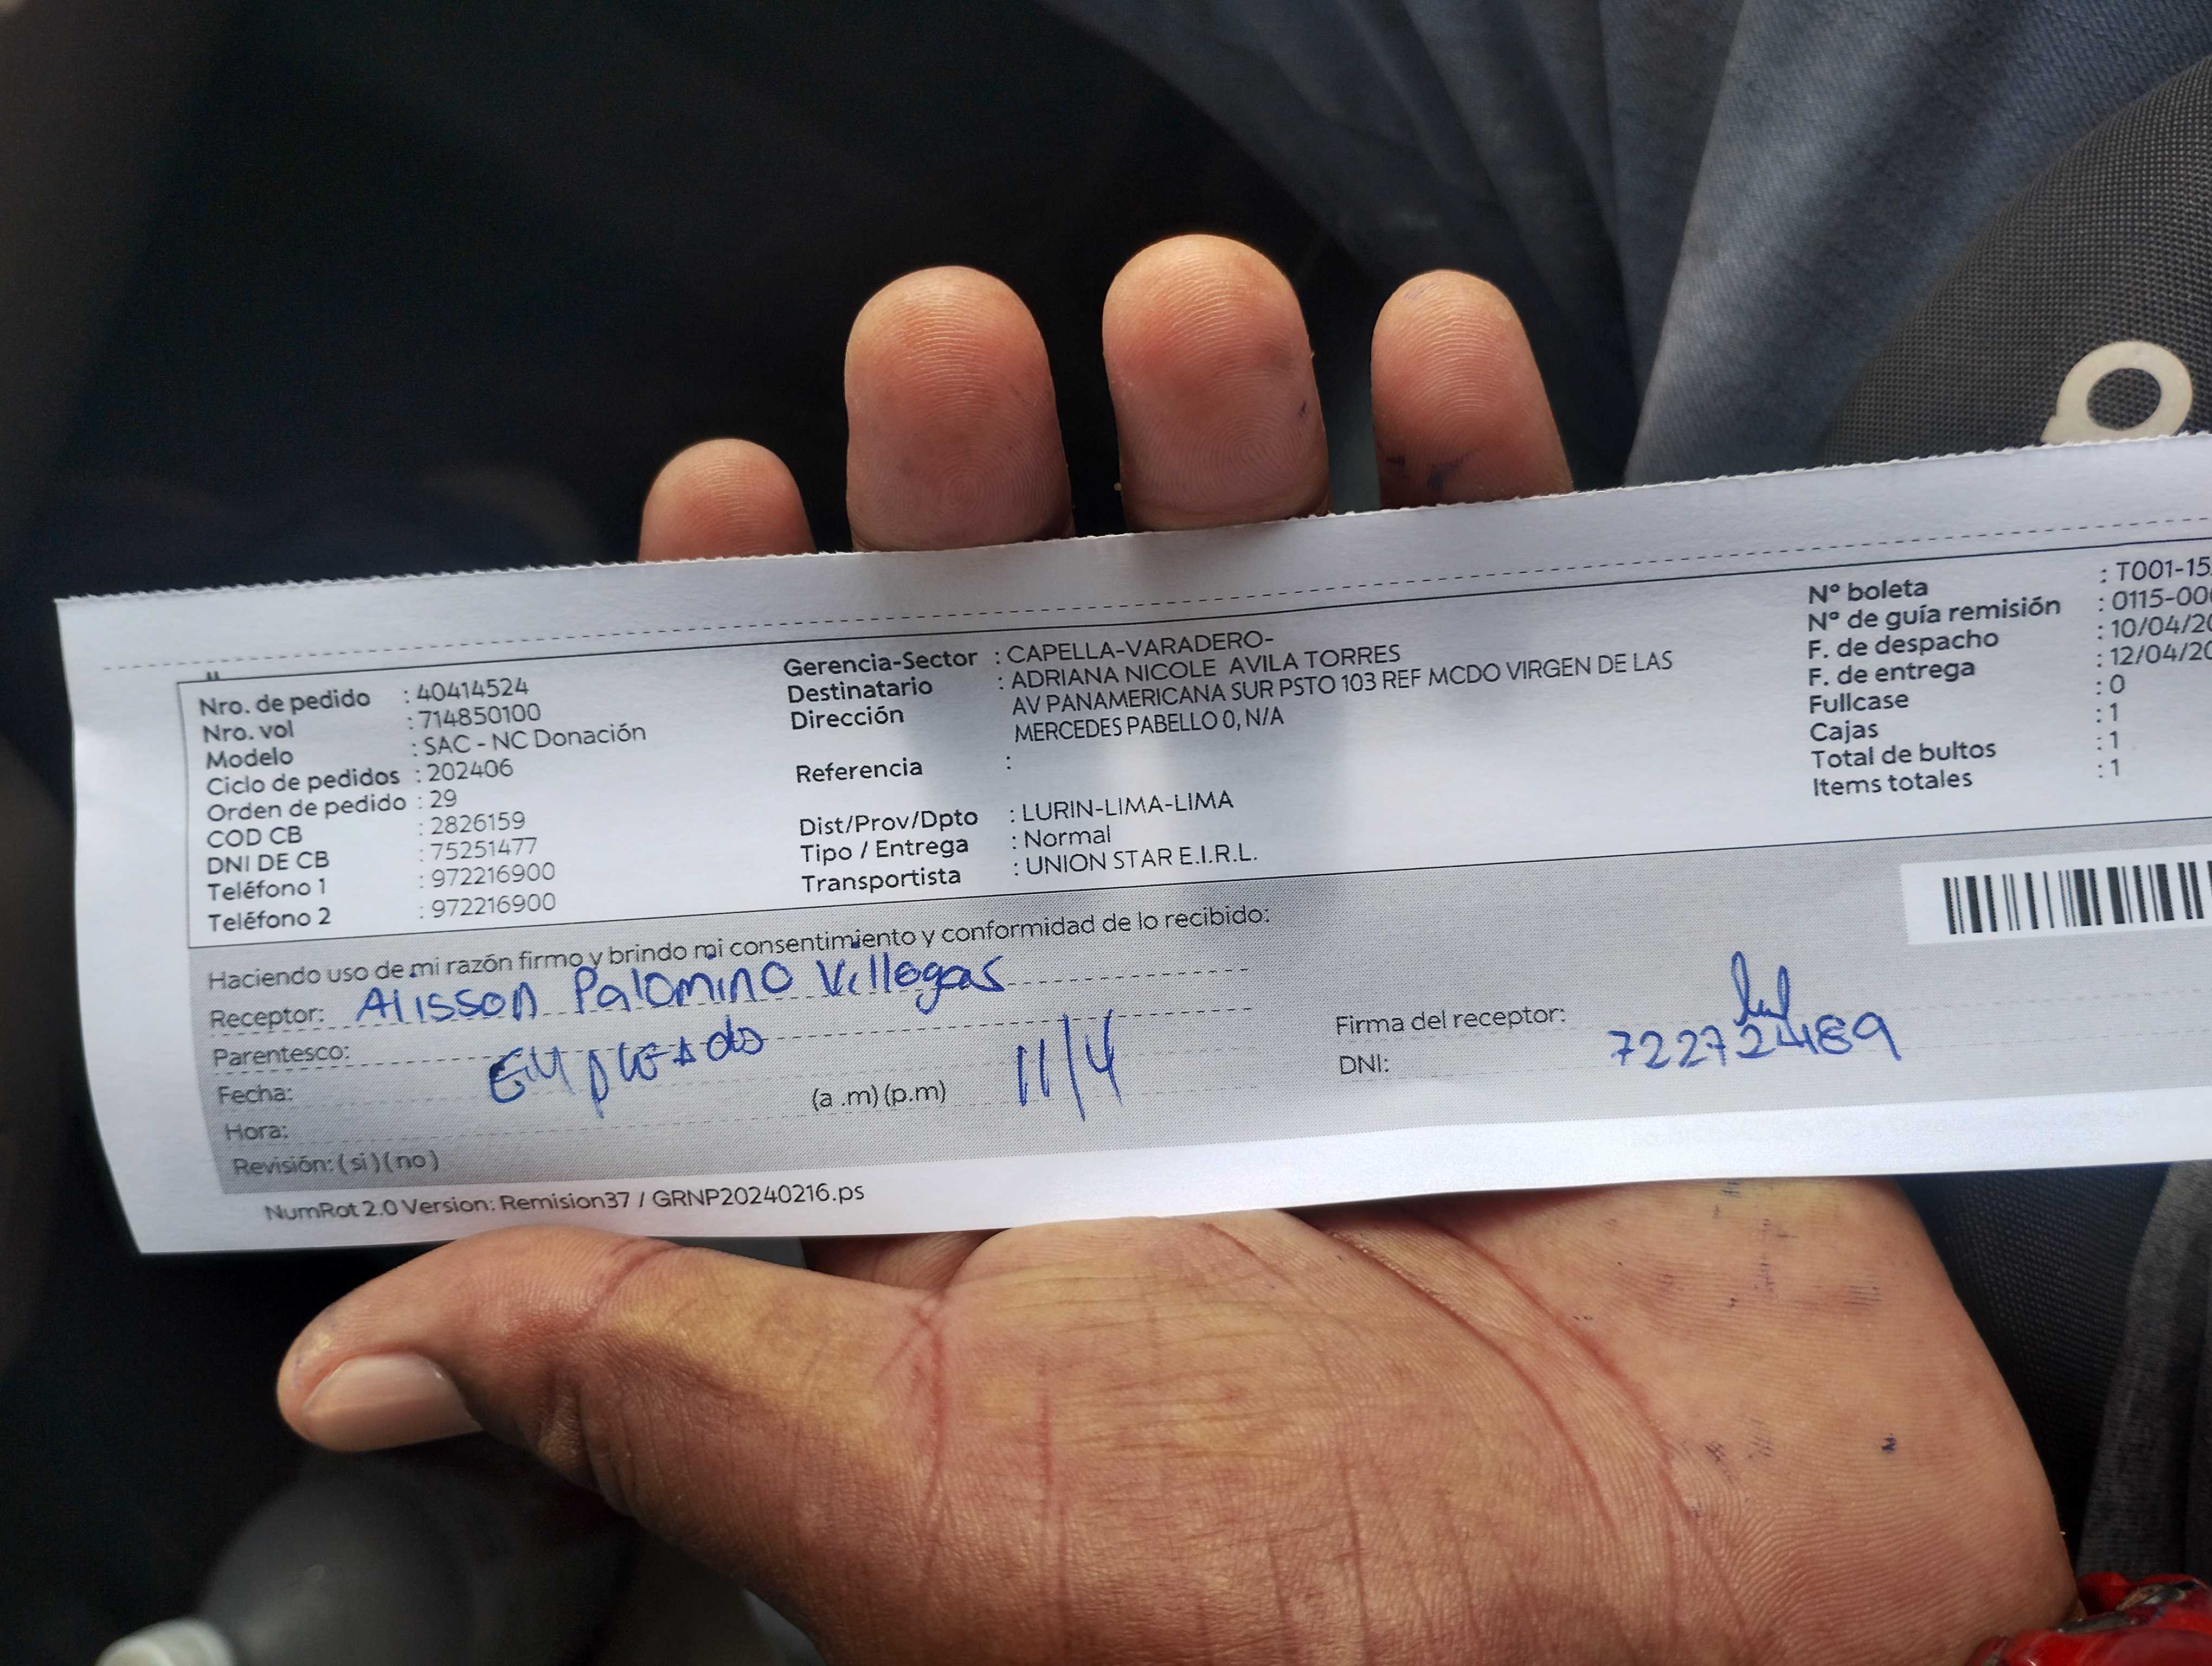 Nro. de pedido : 40414524
Nro. vol : 714850100
Modelo : SAC - NC Donación
Ciclo de pedidos : 202406
Orden de pedido : 29
COD CB : 2826159
DNI DE CB : 75251477
Teléfono 1 : 972216900
Teléfono 2 : 972216900
Gerencia-Sector : CAPELLA-VARADERO-
Destinatario : ADRIANA NICOLE AVILA TORRES
Dirección AV PANAMERICANA SUR PSTO 103 REF MCDO VIRGEN DE LAS
MERCEDES PABELLO 0, N/A
Referencia :
Dist/Prov/Dpto : LURIN-LIMA-LIMA
Tipo / Entrega : Normal
Transportista : UNION STAR E.I.R.L.
Nº boleta : T001-15
Nº de guía remisión : 0115-00
F. de despacho : 10/04/20
F. de entrega : 12/04/20
Fullcase : 0
Cajas : 1
Total de bultos : 1
Items totales : 1
Haciendo uso de mi razón firmo y brindo mi consentimiento y conformidad de lo recibido:
Receptor: Alisson Palomino Villegas
Parentesco: Empleado
Fecha: 11/4
Hora: (a .m) (p.m)
Revisión: (si) (no)
Firma del receptor:
DNI: 72272489
NumRot 2.0 Version: Remision37 / GRNP20240216.ps